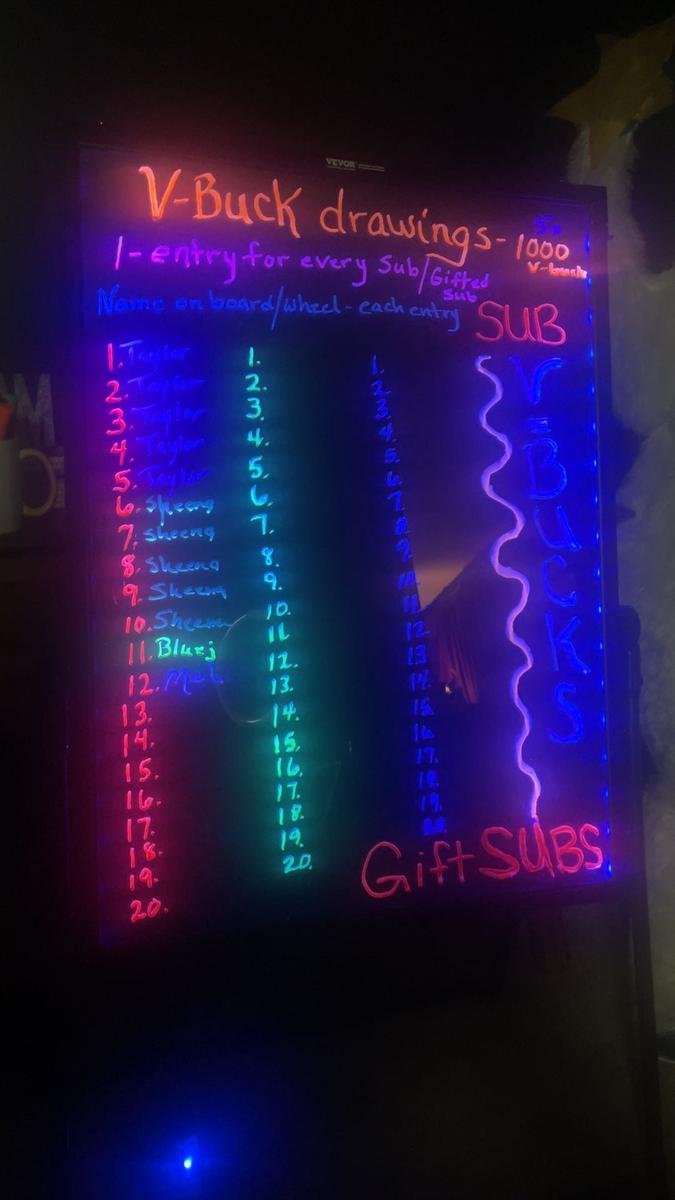 VEVOR
V-Buck drawings-
5x
1000
V-bucks
1-entry for every Sub/Gifted
Sub
Name on board/wheel-each entry
SUB
1. Taylor
2. Taylor
3. Taylor
4. Taylor
5. Taylor
6. Sheena
7. Sheena
8. Sheena
9. Sheena
10. Sheena
11. Blurj
12. Mel
13.
14.
15.
16.
17.
18.
19.
20.
1.
2.
3.
4.
5.
6.
7.
8.
9.
10.
11.
12.
13.
14.
15.
16.
17.
18.
19.
20.
1.
2.
3.
4.
5.
6.
7.
8.
9.
10.
11.
12.
13.
14.
15.
16.
17.
18.
19.
20.
V-BUCKS
Gift SUBS